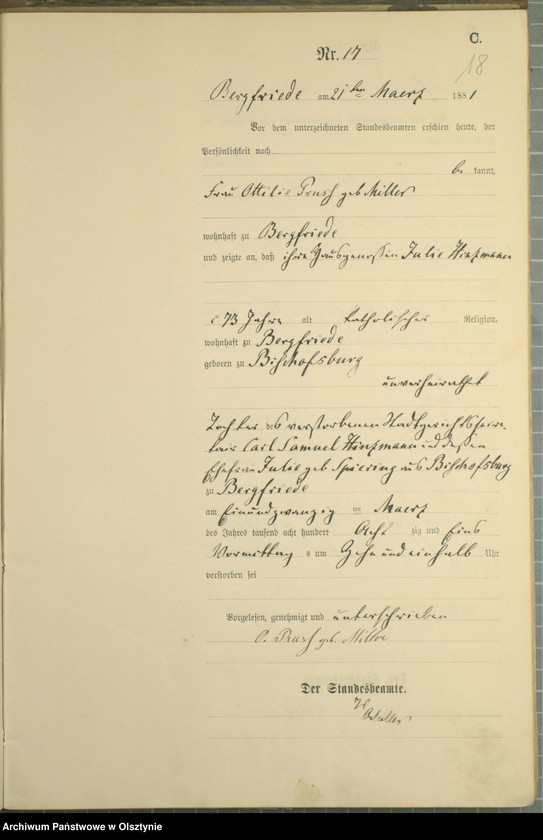 C.
18
Nr. 17
Bergfriede am 21ten Maerz 1881
Vor dem unterzeichneten Standesbeamten erschien heute, der
Persönlichkeit nach
be kannt,
Frau Ottilie Prush geb Miller
wohnhaft zu Bergfriede
und zeigte an, daß ihre Hausgenossin Julie Hinzmann
c 73 Jahre alt katholischer Religion,
wohnhaft zu Bergfriede
geboren zu Bischofsburg
unverheirathet
Tochter des verstorbenen Stadtgerichtssekre-
tair Carl Samuel Hinzmann und dessen
Ehefrau Julie geb Spiering aus Bischofsburg
zu Bergfriede
am Einundzwanzig ten Maerz
des Jahres tausend acht hundert Acht zig und Eins
Vormittag s um Zehn und einhalb Uhr
verstorben sei
Vorgelesen, genehmigt und unterschrieben
O. Prush geb. Miller
Der Standesbeamte.
Müller
Archiwum Państwowe w Olsztynie